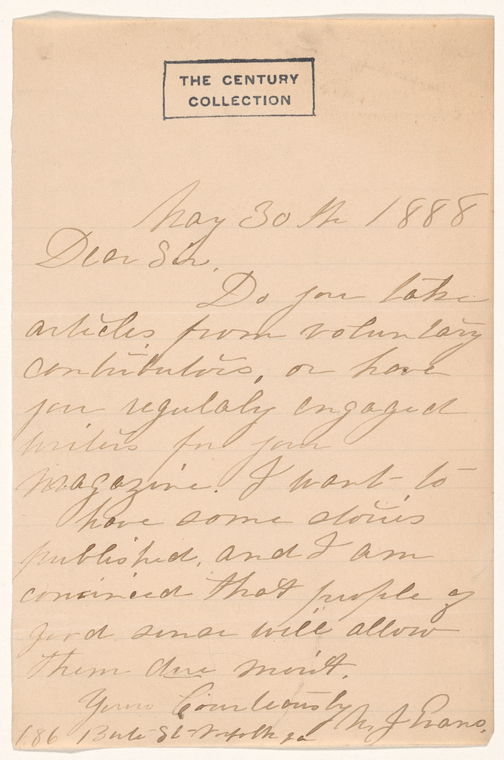 THE CENTURY
COLLECTION
May 30th 1888
Dear Sir,
Do you take
articles from voluntary
contributors, or have
you regulaly engaged
writers for your
magazine. I want to
have some stories
published, and I am
convinced that people of
good sense will allow
them due merit.
Yours Courteously
M J Evans.
186 Bute St Norfolk Va